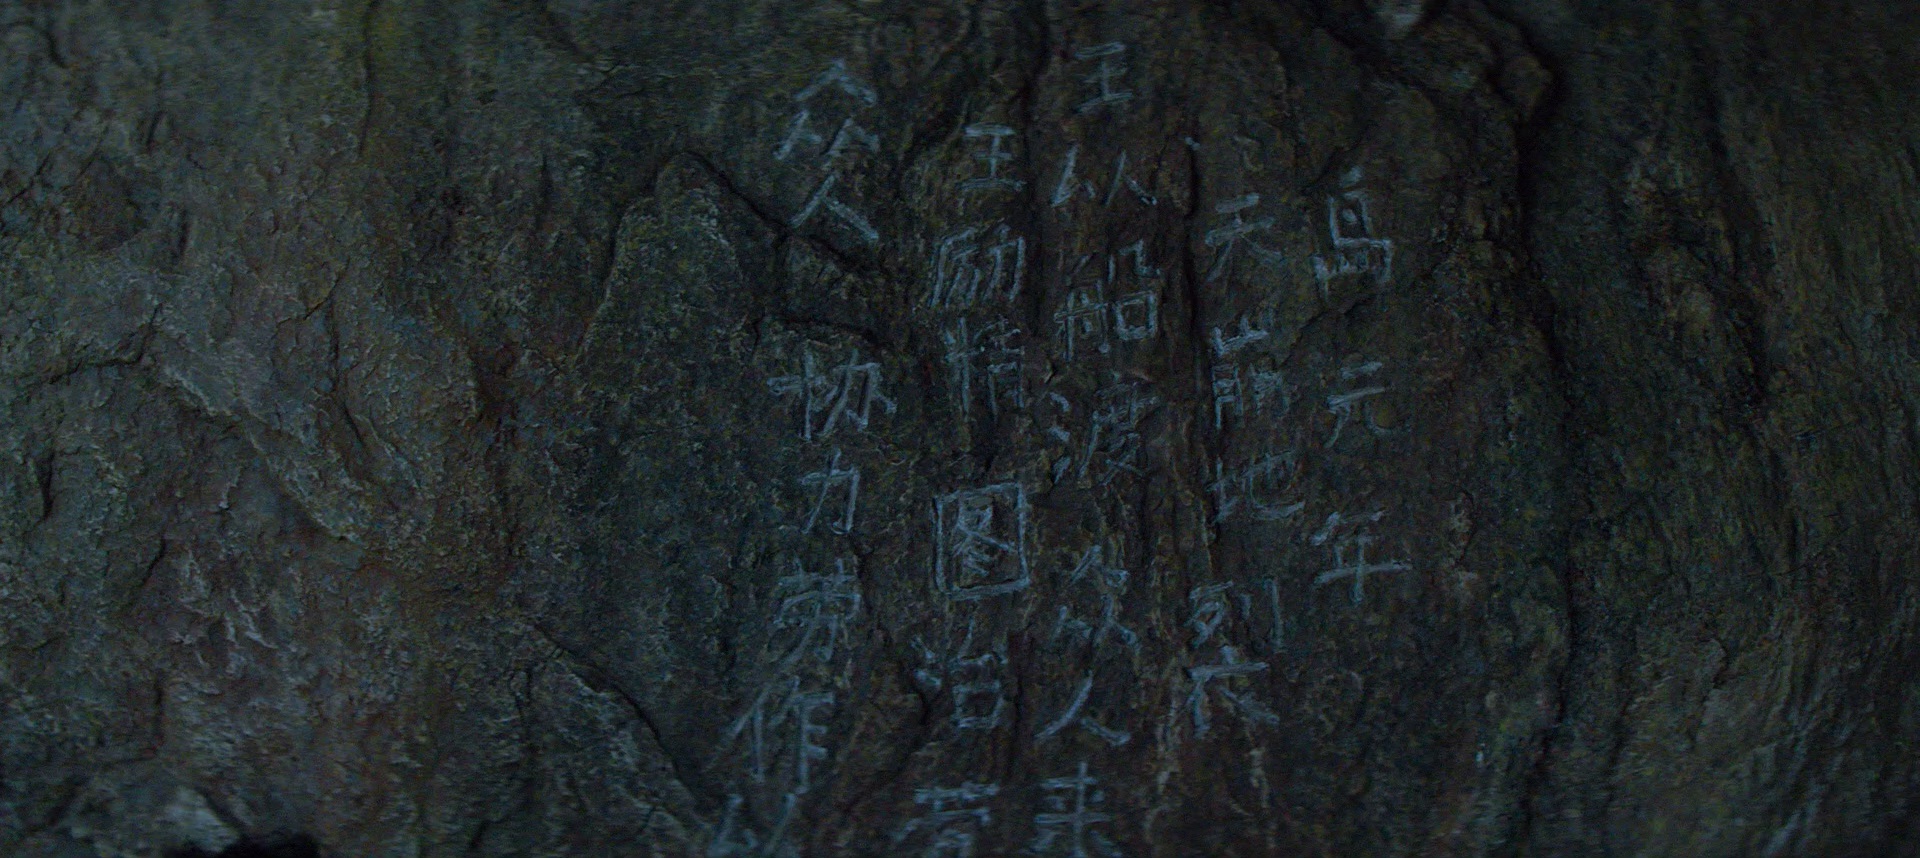 岛元年
天崩地裂
王以船渡众人来
王励精图治
众人协力劳作以